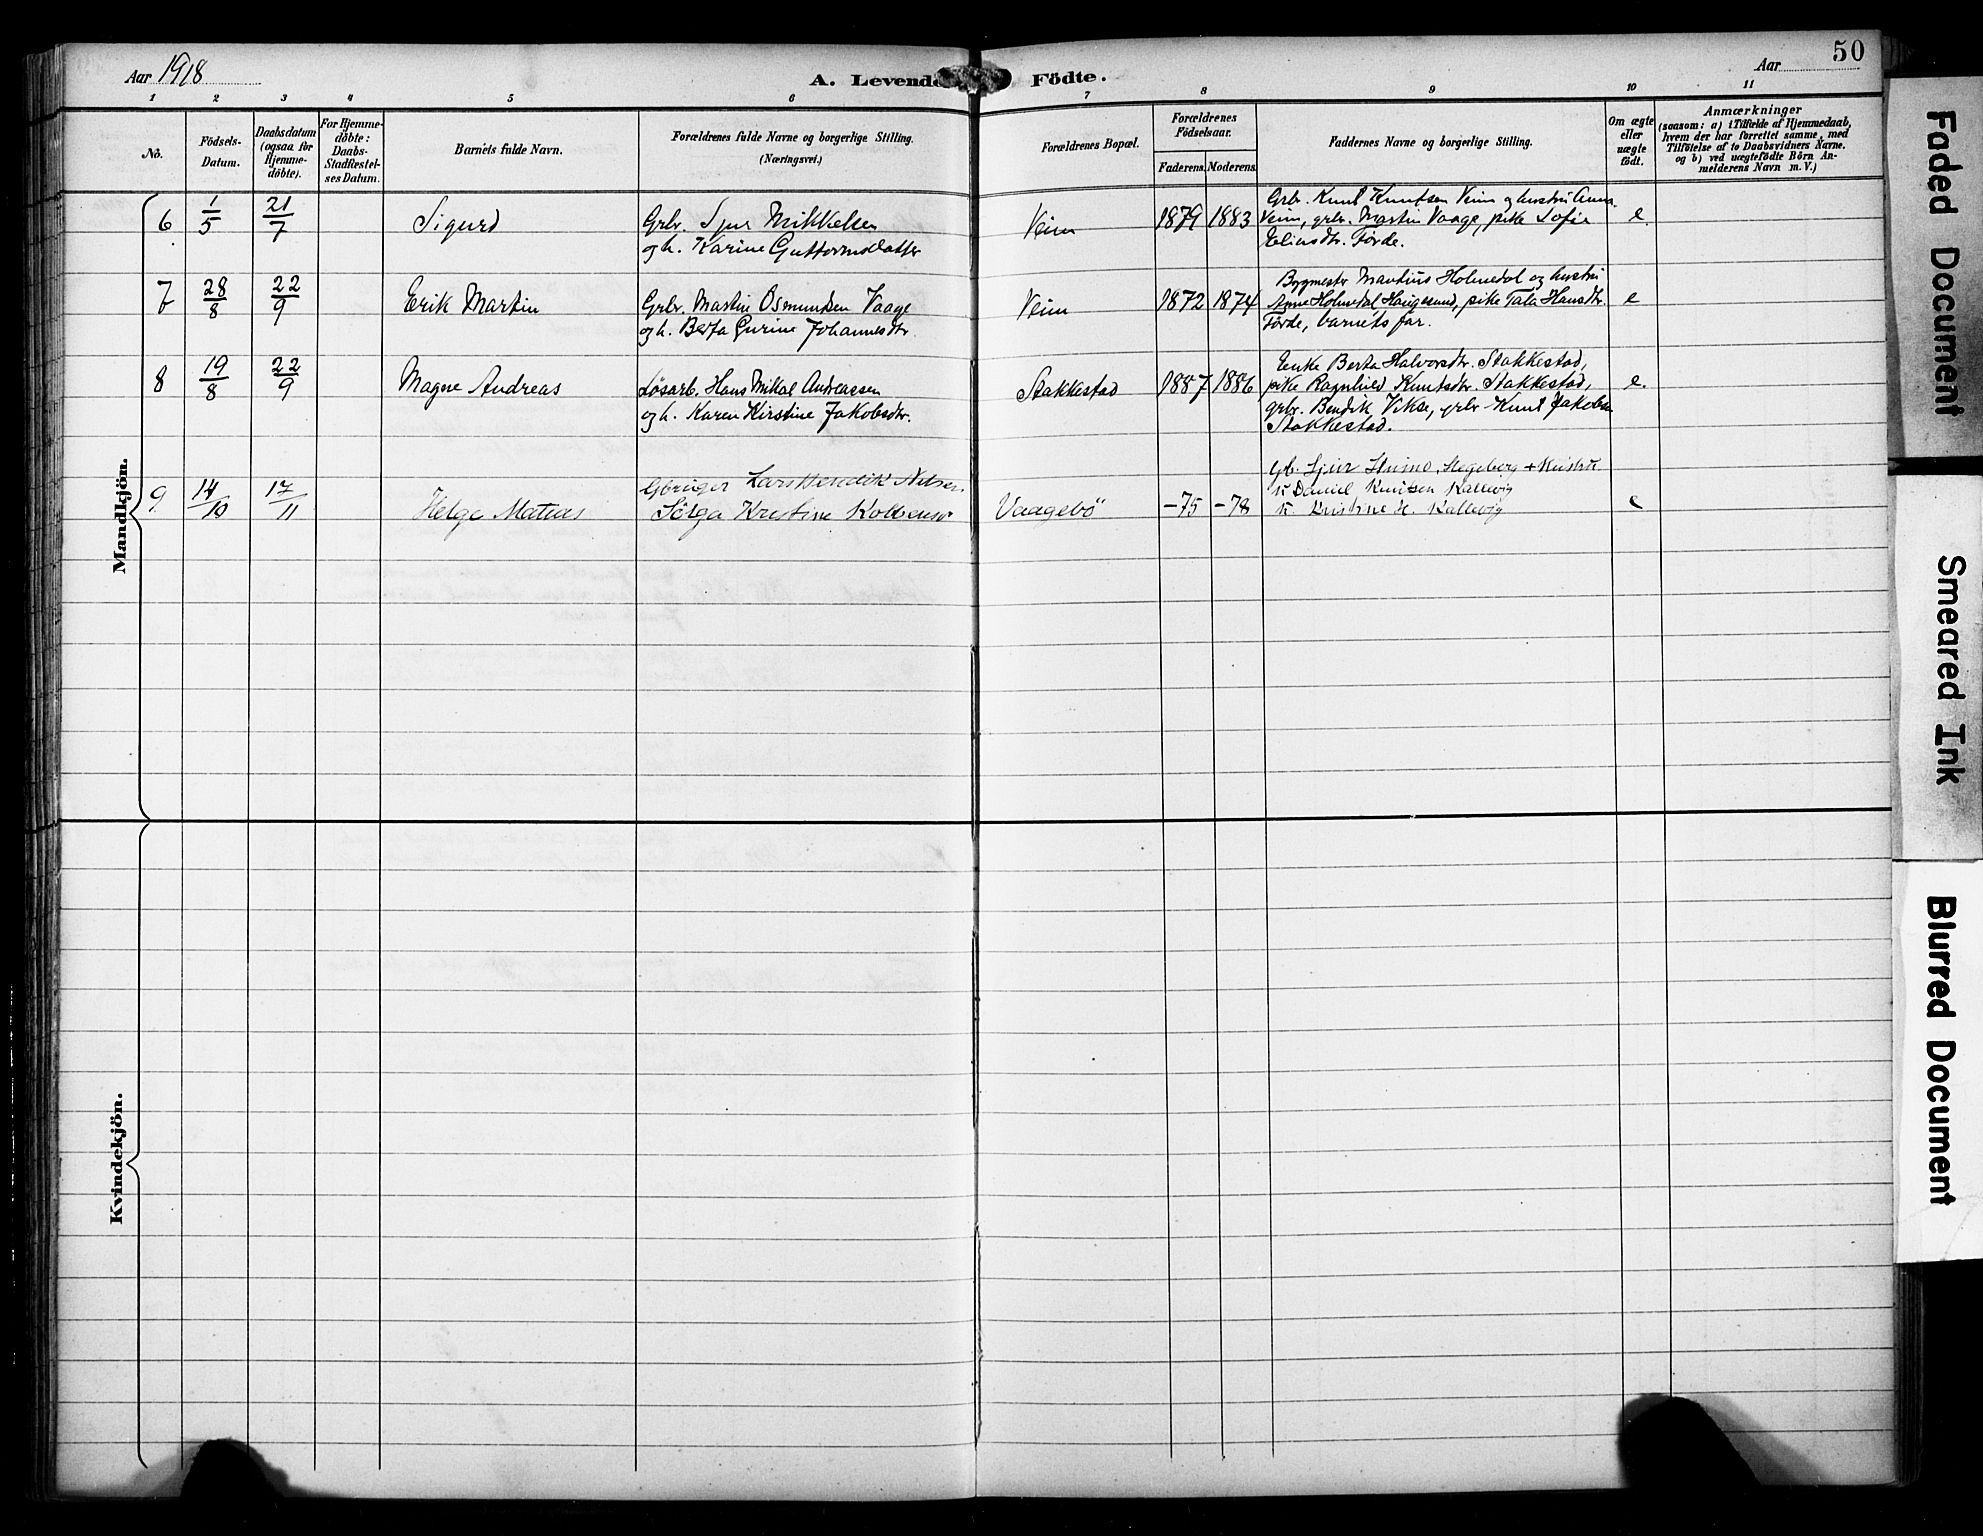 Aar 1918
A. Levende Födte.
Aar
50
1 2 3 4 5 6 7 8 9 10 11
No.
Födsels-
Datum.
Daabsdatum
(ogsaa for
Hjemme-
döbte).
For Hjemme-
döbte:
Daabs-
Stadfæstel-
ses Datum.
Barnets fulde Navn.
Forældrenes fulde Navne og borgerlige Stilling.
(Næringsvei.)
Forældrenes Bopæl.
Forældrenes
Födselsaar.
Faderens. Moderens.
Faddernes Navne og borgerlige Stilling.
Om ægte
eller
uægte
födt.
Anmærkninger
(saasom: a) i Tilfælde af Hjemmedaab,
hvem der har forrettet samme, med
Tilföielse af to Daabsvidners Navne,
og b) ved uægtefödte Börn An-
melderens Navn m. V.)
Mandkjön.
6 1/5 21/7 Sigurd
Grbr. Sjur Mikkelsen
og h. Karine Guttormsdatter
Veim 1879 1883
Grbr. Knut Knutsen Veim og hustru Anna
Veim, grbr. Martin Vaage, pike Sofie
Eliasdtr. Førde.
e.
7 28/8 22/9 Erik Martin
Grbr. Martin Osmundsen Vaage
og h. Berta Gurine Johannesdtr.
Veim 1872 1874
Bygmester Martius Holmedal og hustru
Anne Holmedal Haugesund, pike Tala Hansdtr.
Førde, barnets far.
e
8 19/8 22/9 Magne Andreas
Løsarb. Hans Mikal Andreassen
og h. Karen Kirstine Jakobsdtr.
Stakkestad 1887 1886
Enke Berta Halvorsdtr. Stakkestad,
pike Ragnhild Knutsdtr. Stakkestad,
grbr. Bendik Vikse, grbr Knut Jakobsen
Stakkestad.
e.
9 14/10 17/11 Helge Mateus
Gbruger Lars Bendik Nilsen
Sølga Krestine Kolbensd
Vaagebö -75 -78
Gb. Sjur Stegeberg + Hustru
K Daniel Knutsen Kallevig
K. Kristine H. Kallevig
e
Kvindekjön.
Faded Document
Smeared Ink
Blurred Document